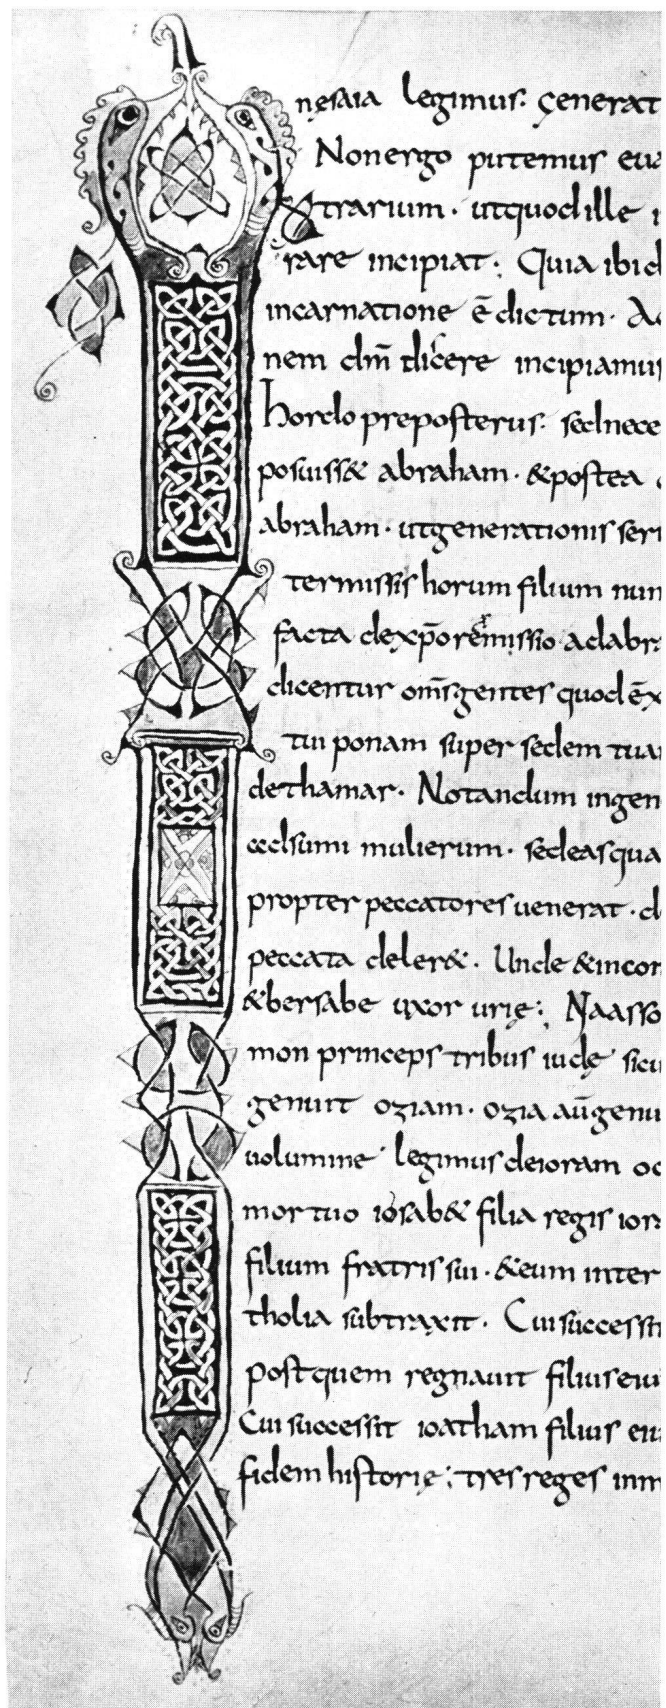 nęsaia legimus. Generat
Non ergo putemus eua
trarium. ut quod ille i
rare incipiat; Quia ibid
incarnatione ē dictum. Ad
nem dm̄ dicere incipiamus
hordo preposterus. sed nece
posuiss& abraham. & postea
abraham. ut generationis seri
termissis horum filium nun
facta de xp̄o remissio ad abra
dicentur om̄s gentes quod ē x
tui ponam super sedem tuam
de thamar. Notandum in gen
sumi mulierum. sed eas qua
propter peccatores uenerat. d
peccata deler&. Unde & in cor
& bersabe uxor urię; Naasso
mon princeps tribus iudę sicu
genuit oziam. ozia aūt genu
uolumine legimus de ioram oc
mortuo iosab& filia regis iora
filium fratris sui. & eum inter
tholia subtraxit. Cui successit
post quem regnauit filius eiu
Cui successit ioatham filius eiu
fidem historię; tres reges in m